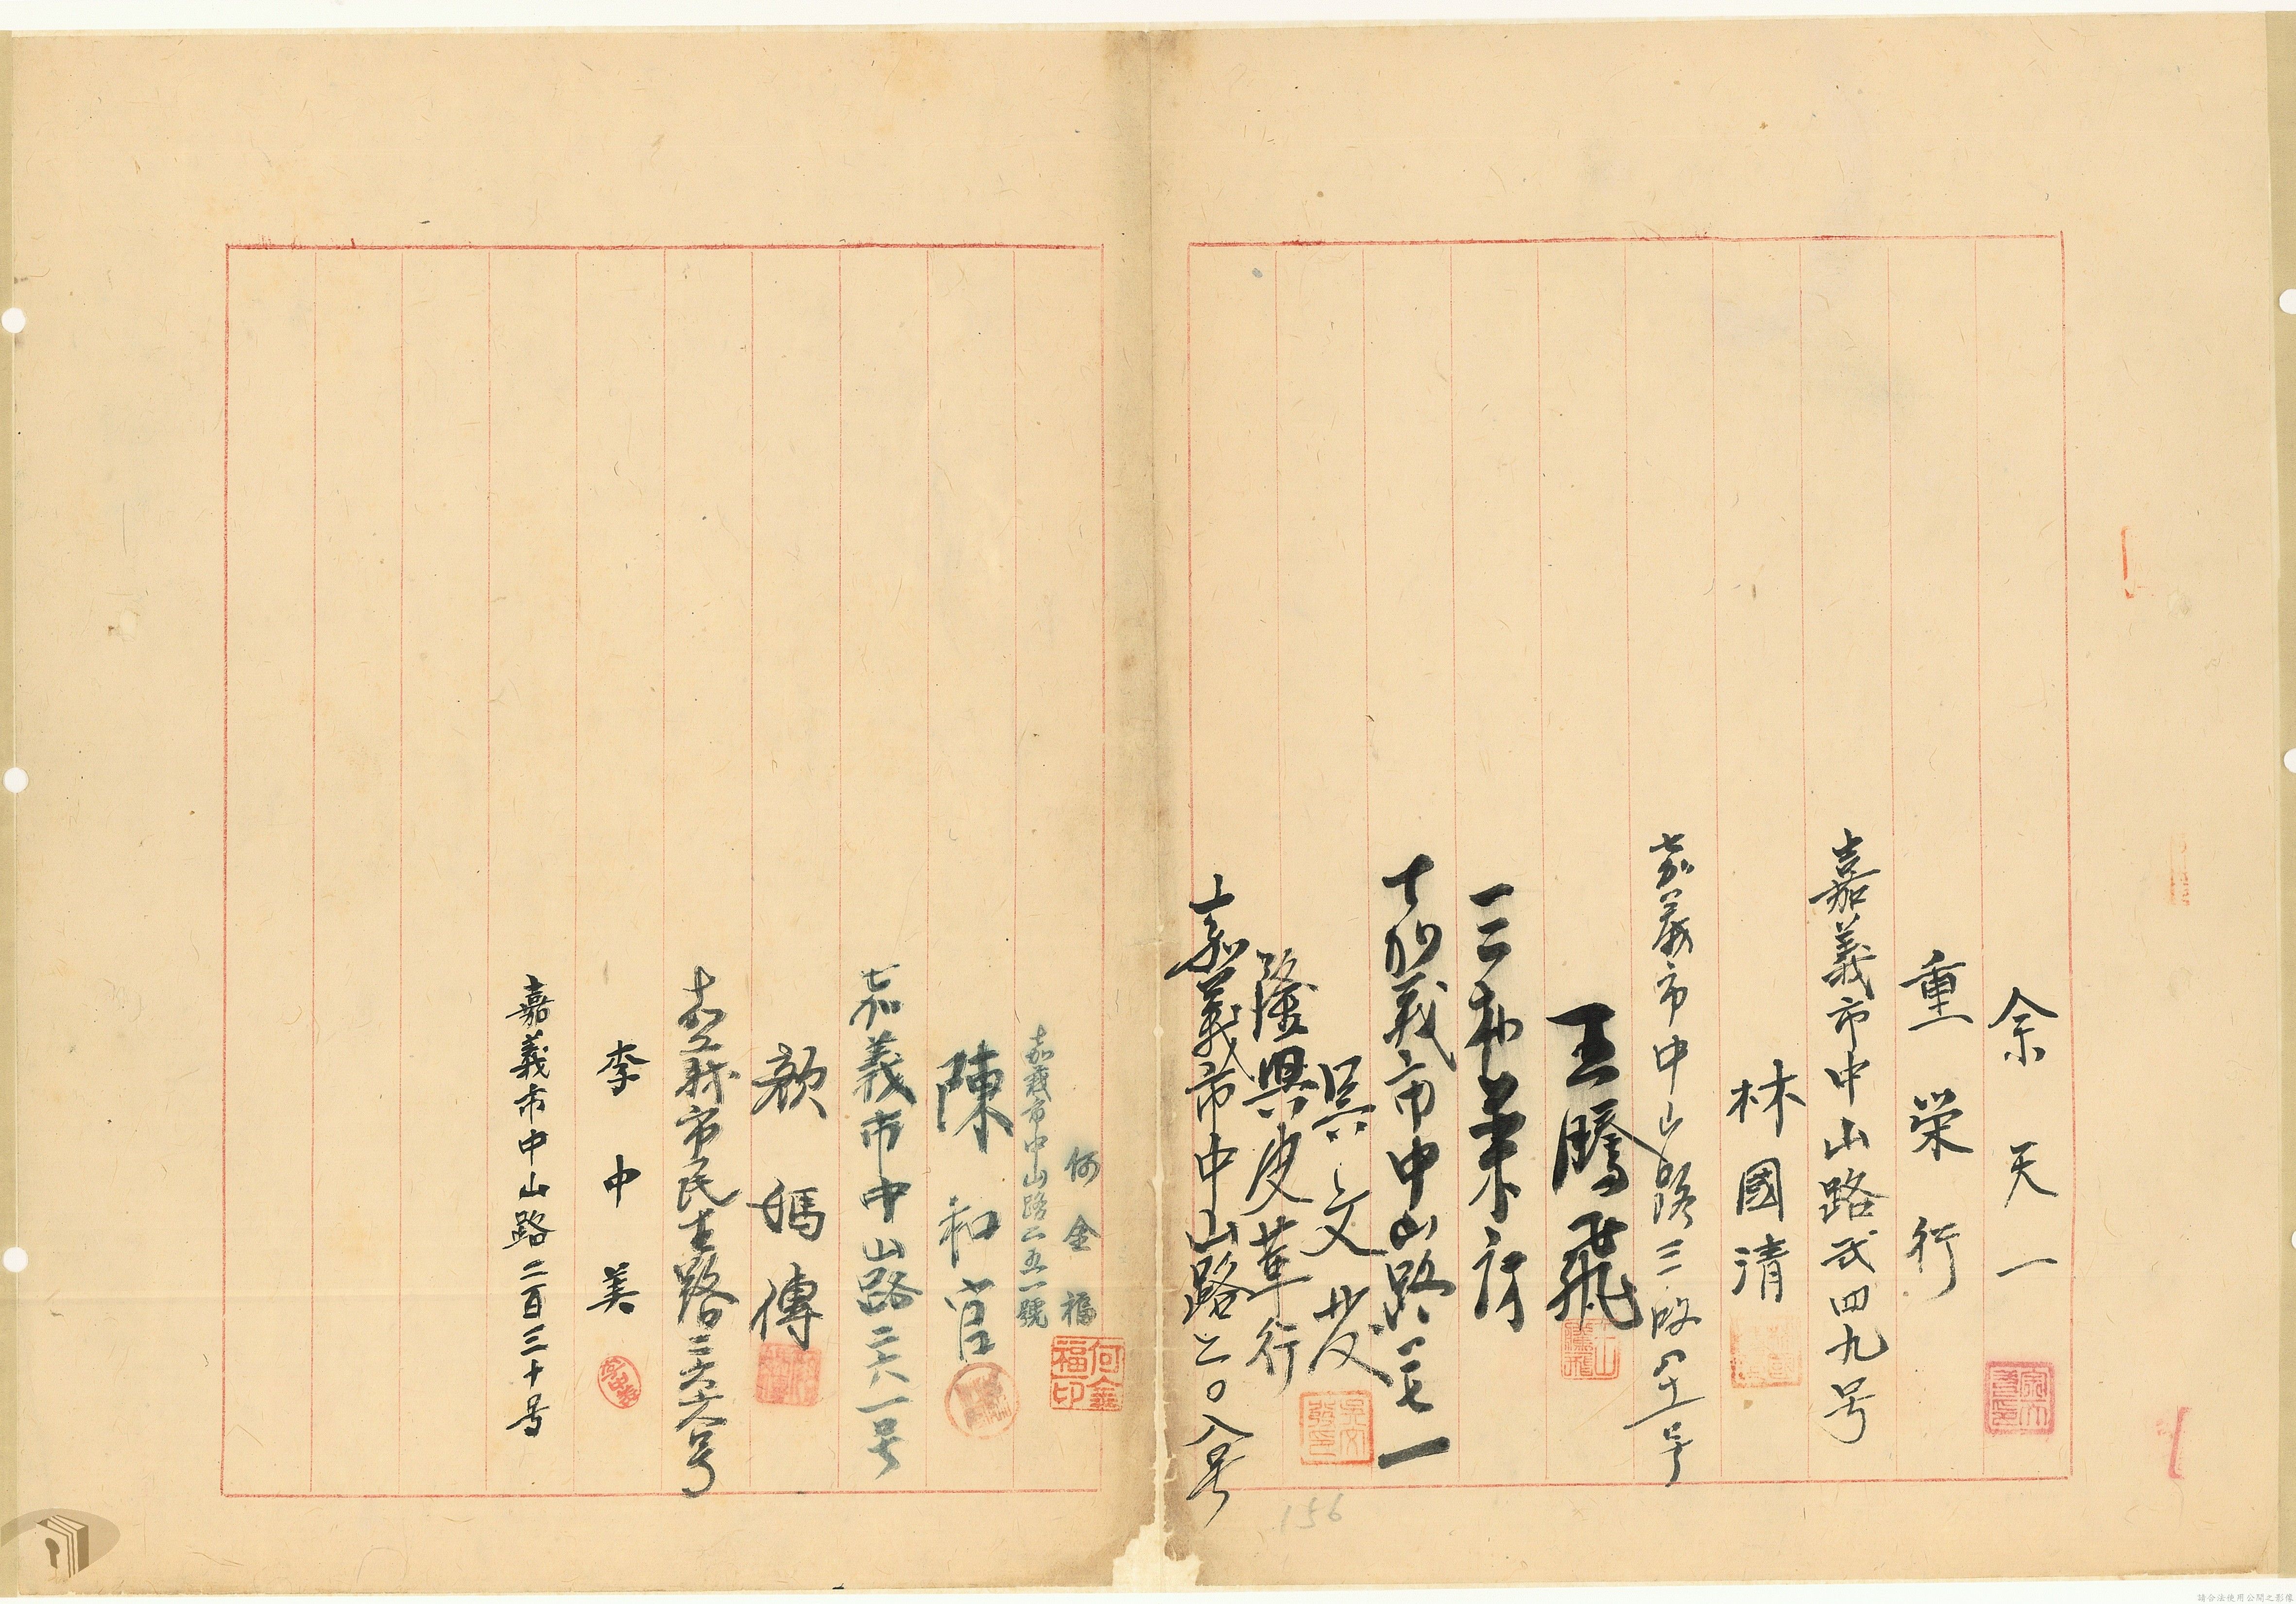 余天一
重榮行
嘉義市中山路弍四九号
林國清
嘉義市中山路三段四十一号
王騰飛
三和藥行
嘉義市中山路一七一
吳文發
隆興皮革行
嘉義市中山路二〇八号
何金福
何金福印
嘉義市中山路二五一號
陳和
嘉義市中山路二六一号
媽傳
嘉義市民生路三六六号
李中美
嘉義市中山路二百三十号
156
請合法使用公開之影像